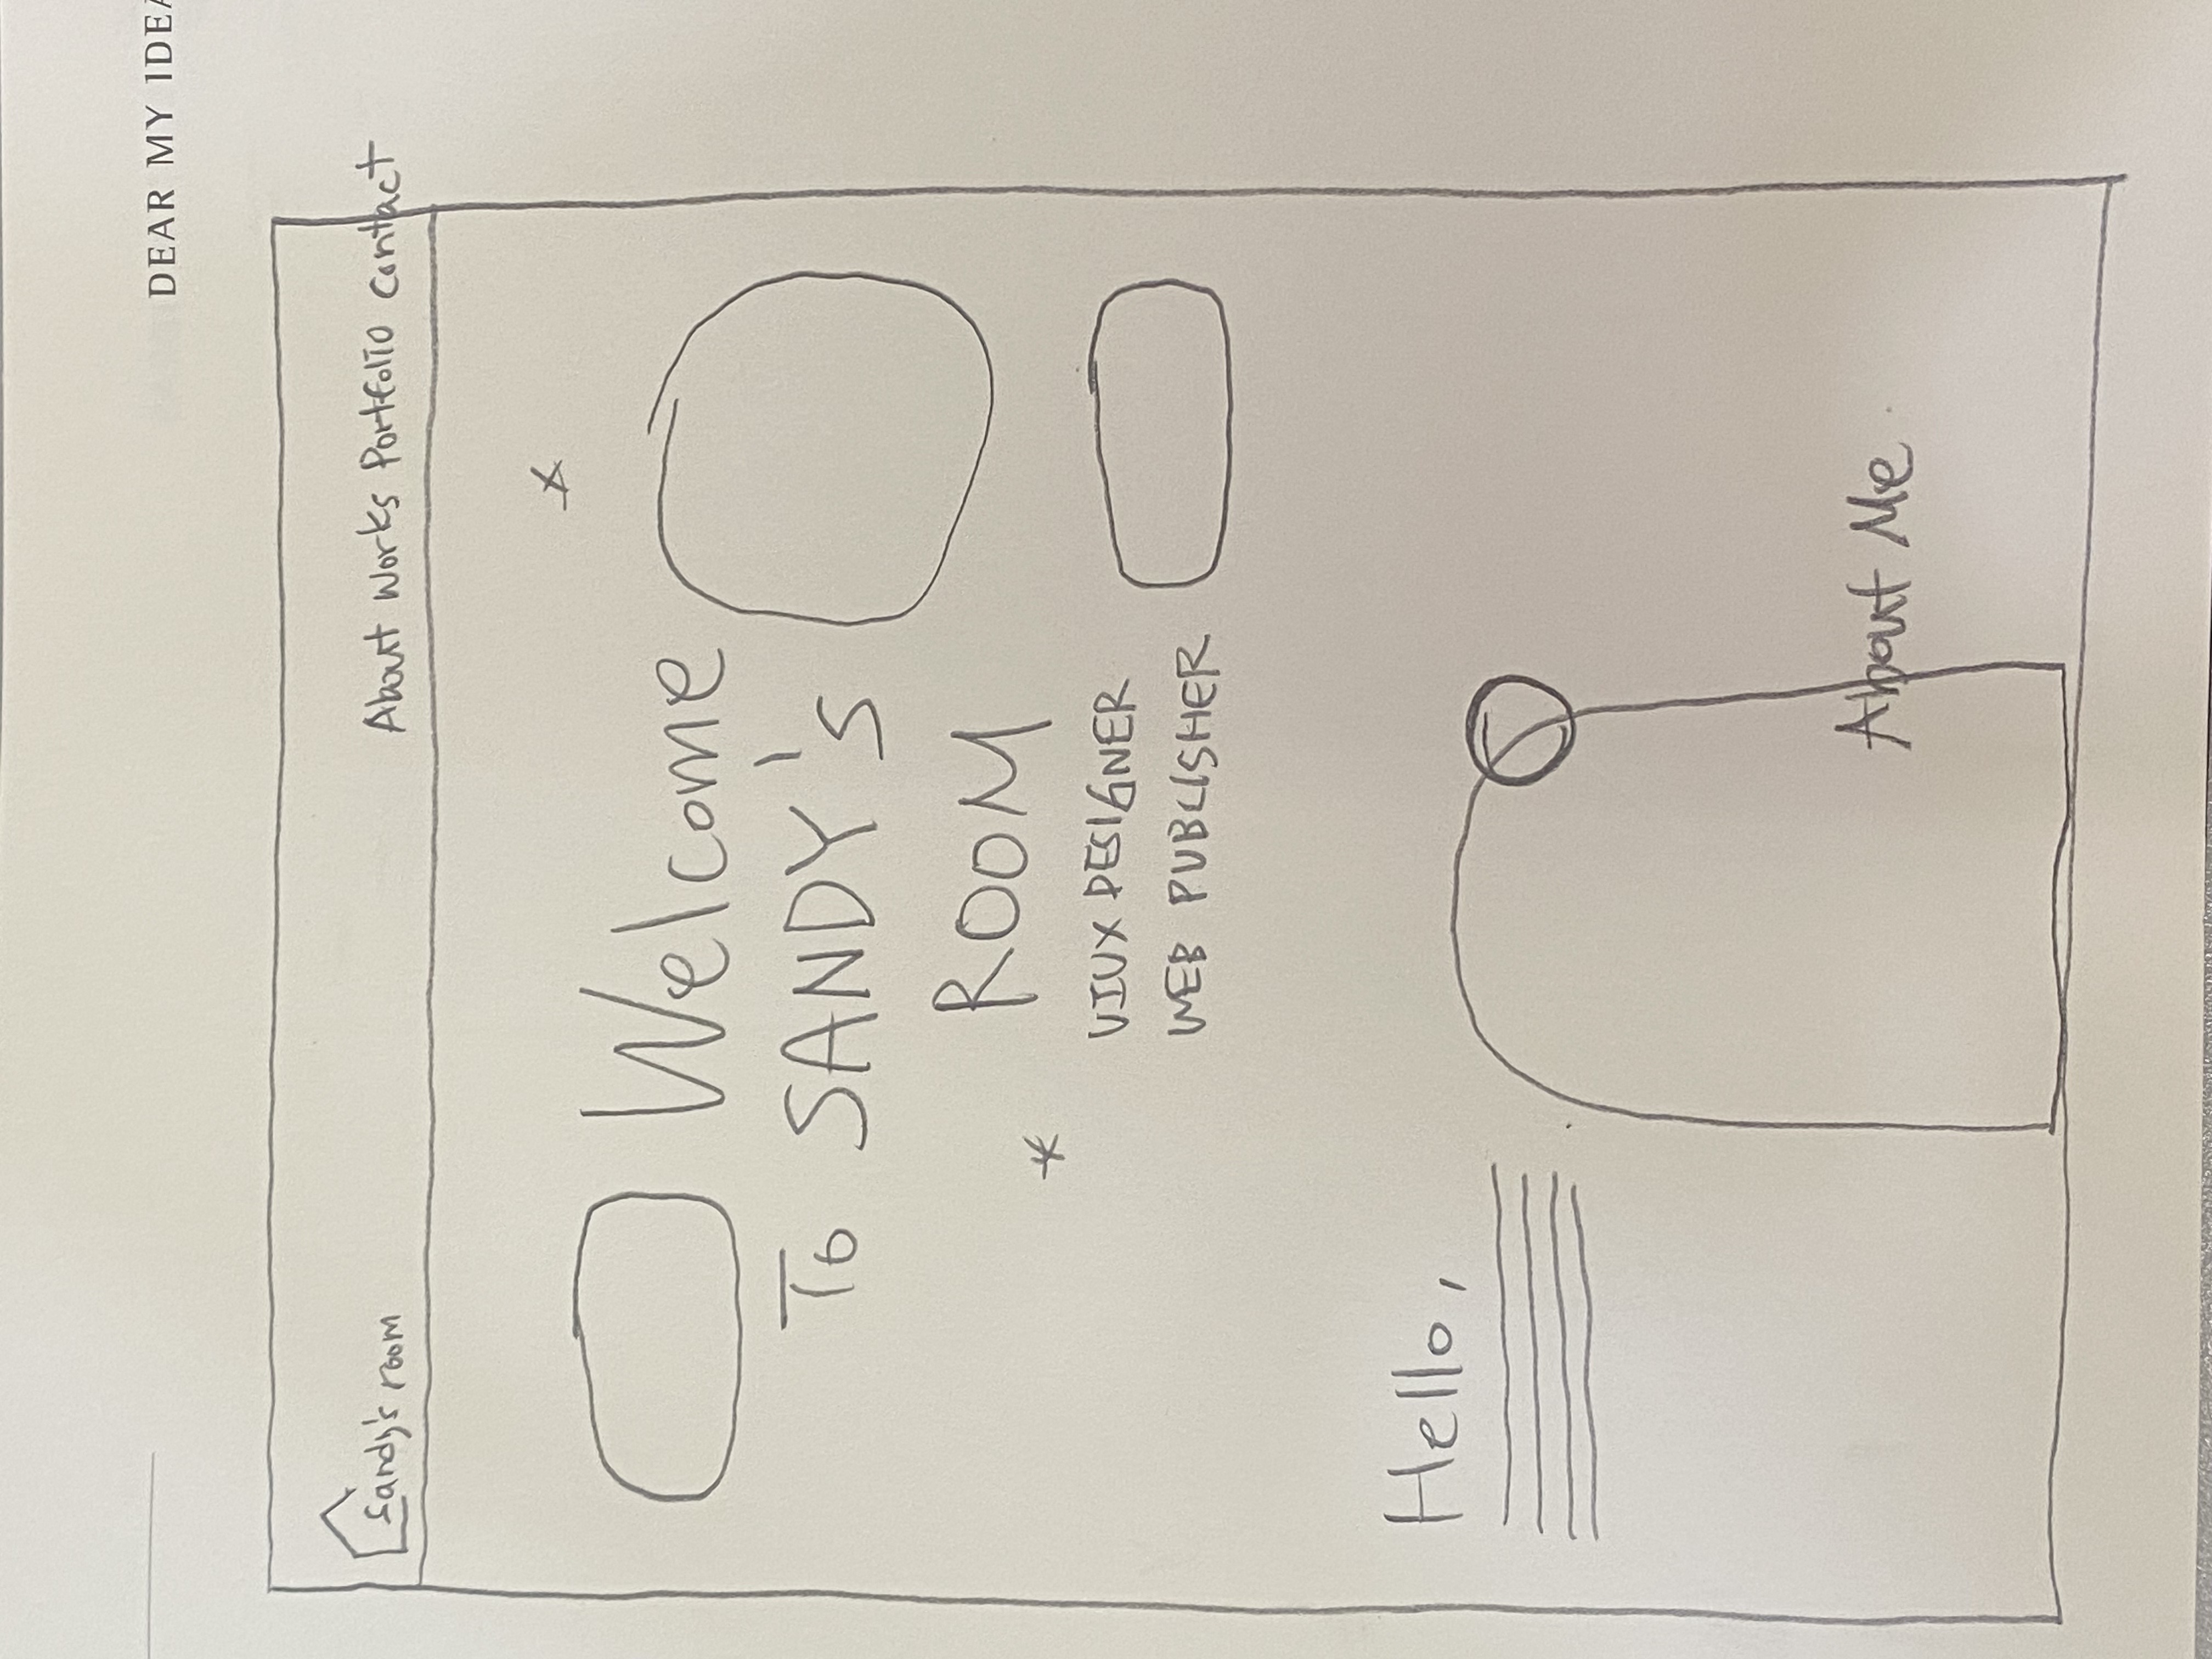 DEAR MY IDEA
Sandy's room About Works Portfolio Contact
Welcome
To SANDY's
ROOM
UIUX DESIGNER
WEB PUBLISHER
Hello,
About Me